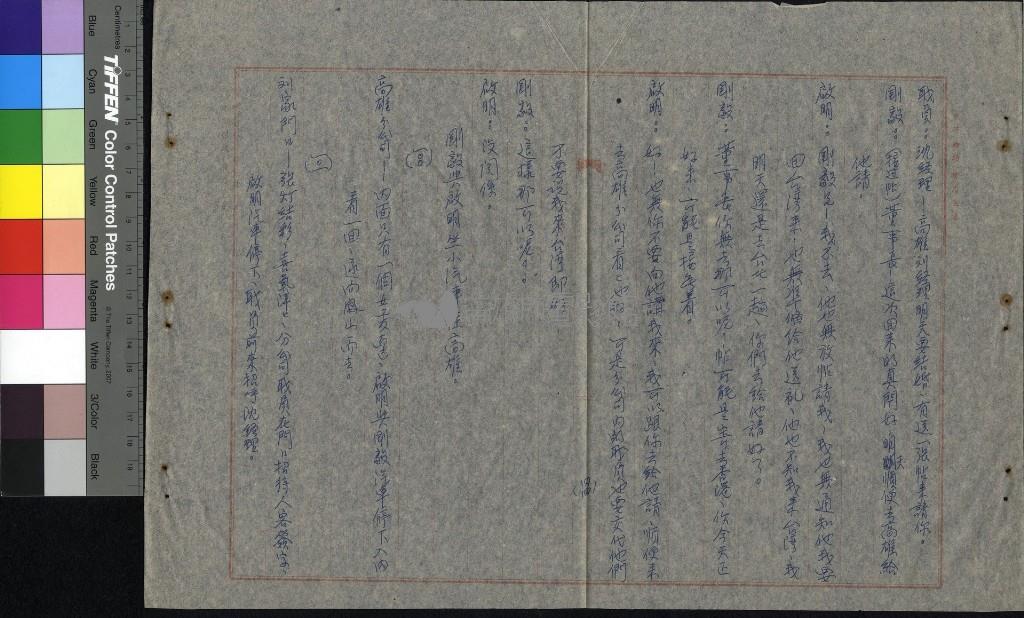 職員：沈經理－高雄刘經理明天要結婚、有送一張帖來請你。
剛毅：(錯過)董事長、這次回來的真剛好、明天順便去高雄給
他請。
啟明：剛毅兄－我不去、他也無放帖請我、我也無通知他我要
回台灣來、也無準備給他送礼、他也不知我來台灣、我
明天還是去台北一趟、你們去給他請好了。
剛毅：董事長你無去那可以呢、帖可能是寄去香港、你今天正
好來、可能是接無着。
啟明：好－也無你不要向他講我來、我可以跟你去給他請、順便來
去高雄分公司看看也好、可是分公司內部職員也要交代他們
不要說我來台灣即好
剛毅：這樣那可以呢。
啟明：沒関係。
剛毅與啟明坐小汽車往高雄。
高雄分公司－内面只有一個女
看一回、遂向
刘家門口－張灯結彩、喜氣洋洋、分公司職員在門口招待人客簽字、
啟明汽車停下、職員前來招呼沈經理。
Centimetres
TIFFEN Color Control Patches
© The Tiffen Company, 2007
Blue
Cyan
Green
Yellow
Red
Magenta
White
3/Color
Black